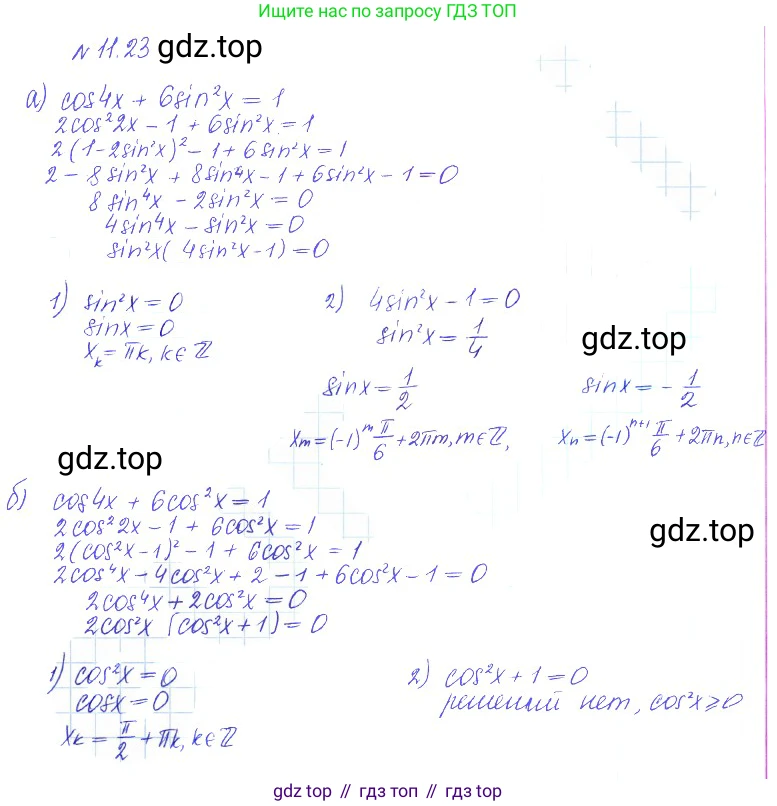 Ищите нас по запросу ГДЗ ТОП
№ 11.23 gdz.top
а) cos4x + 6sin²x = 1
2cos²2x - 1 + 6sin²x = 1
2(1-2sin²x)² - 1 + 6sin²x = 1
2 - 8sin²x + 8sin⁴x - 1 + 6sin²x - 1 = 0
8sin⁴x - 2sin²x = 0
4sin⁴x - sin²x = 0
sin²x(4sin²x-1) = 0
1) sin²x = 0
sinx = 0
xₖ = πk, k∈ℤ
2) 4sin²x - 1 = 0
sin²x = 1/4
gdz.top
sinx = 1/2
xₘ = (-1)ᵐ π/6 + 2πm, m∈ℤ,
sinx = - 1/2
xₙ = (-1)ⁿ⁺¹ π/6 + 2πn, n∈ℤ
gdz.top
б) cos4x + 6cos²x = 1
2cos²2x - 1 + 6cos²x = 1
gdz.top
2(cos²x - 1)² - 1 + 6cos²x = 1
2cos⁴x - 4cos²x + 2 - 1 + 6cos²x - 1 = 0
2cos⁴x + 2cos²x = 0
2cos²x (cos²x + 1) = 0
1) cos²x = 0
cosx = 0
xₖ = π/2 + πk, k∈ℤ
2) cos²x + 1 = 0
решений нет, cos²x ⩾ 0
gdz.top // гдз топ // gdz.top